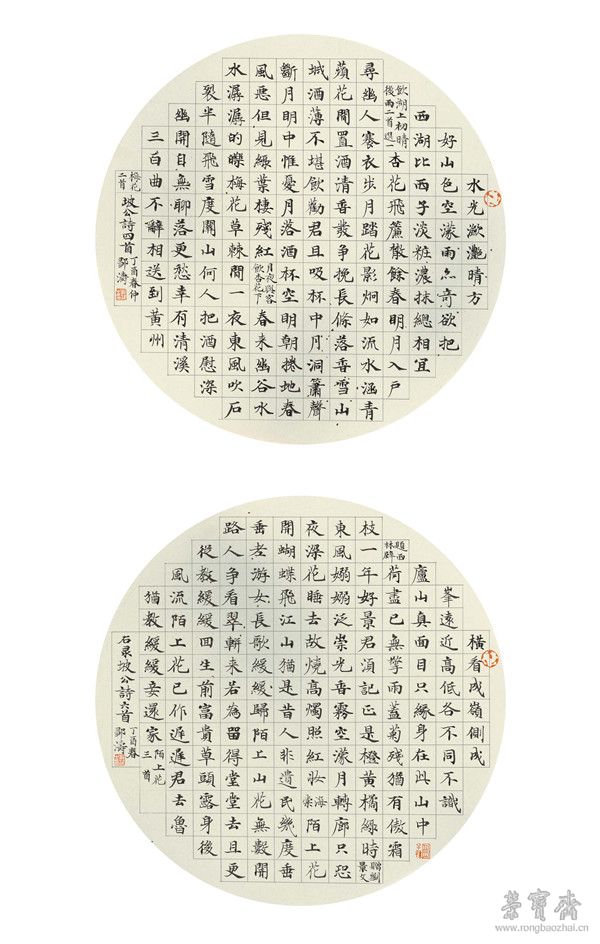 水光瀲灩晴方
好山色空濛雨亦奇欲把
西湖比西子淡粧濃抹總相宜
飲湖上初晴後雨二首選一 杏花飛簾散餘春明月入戶
尋幽人褰衣步月踏花影炯如流水涵青
蘋花間置酒清香發爭挽長條落香雪山
城酒薄不堪飲勸君且吸杯中月洞簫聲
斷月明中惟憂月落酒杯空明朝捲地春
風惡但見綠葉棲殘紅 月夜與客飲杏花下 春來幽谷水
水潺潺的皪梅花草棘間一夜東風吹石
裂半隨飛雪度關山何人把酒慰深
幽開自無聊落更愁幸有清溪
三百曲不辭相送到黃州
梅花二首 坡公詩四首 丁酉春仲 鄒濤
橫看成嶺側成
峯遠近高低各不同不識
廬山真面目只緣身在此山中
題西林壁 荷盡已無擎雨蓋菊殘猶有傲霜
枝一年好景君須記正是橙黃橘綠時 贈劉景文
東風嫋嫋泛崇光香霧空濛月轉廊只恐
夜深花睡去故燒高燭照紅妝 海棠 陌上花
開蝴蝶飛江山猶是昔人非遺民幾度垂
垂老游女長歌緩緩歸陌上山花無數開
路人爭看翠軿來若為留得堂堂去且更
從教緩緩回生前富貴草頭露身後
風流陌上花已作遲遲君去魯
猶教緩緩妾還家 陌上花三首
右录坡公詩六首 丁酉春 鄒濤
榮寶齋
www.rongbaozhai.cn